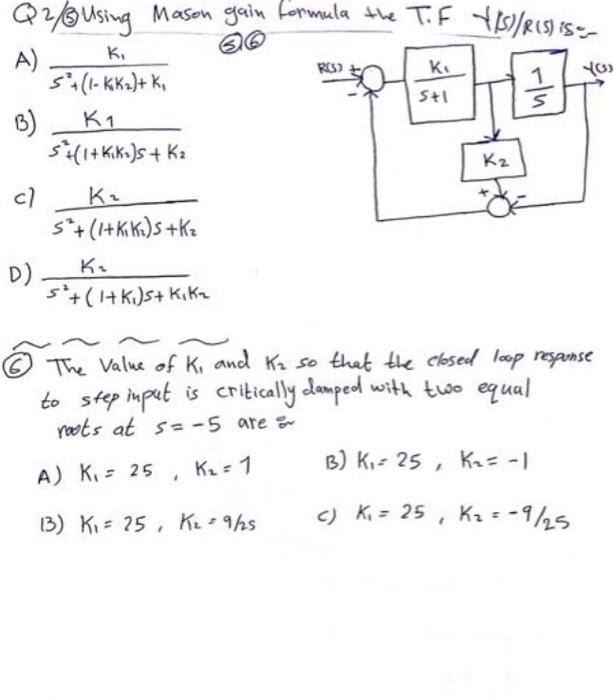 Q2/⑤ Using Mason gain Formula the T.F Y(s)/R(s) is:-
⑤⑥
A) K₁ / s²+(1-K₁K₂)+K₁
B) K1 / s²+(1+K₁K₂)s+K₂
C) K₂ / s²+(1+K₁K₂)s+K₂
D) K₂ / s²+(1+K₁)s+K₁K₂
R(s) + -
K₁ / s+1
1 / s
Y(s)
K₂
+ -
⑥ The Value of K₁ and K₂ so that the closed loop response
to step input is critically damped with two equal
roots at s=-5 are :-
A) K₁= 25 , K₂=1
B) K₁= 25 , K₂= -1
B) K₁= 25 , K₂=9/25
C) K₁= 25 , K₂= -9/25